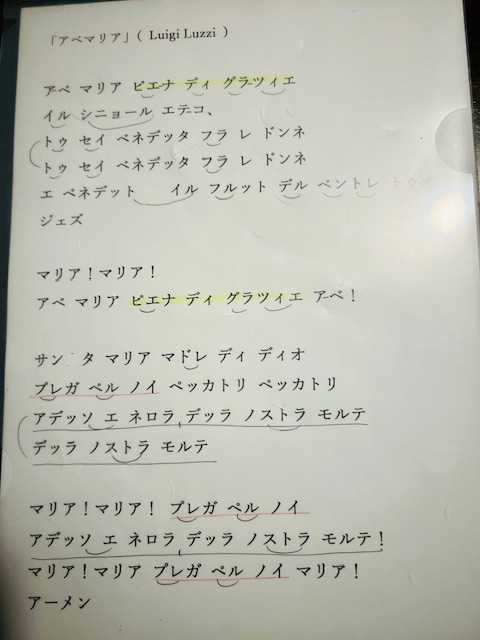 「アベマリア」( Luigi Luzzi )
アベ マリア ピエナ ディ グラツィエ
イル シニョール エテコ、
トゥ セイ ベネデッタ フラ レ ドンネ
トゥ セイ ベネデッタ フラ レ ドンネ
エ ベネデット イル フルット デル ベントレ トゥオ
ジェズ
マリア！マリア！
アベ マリア ピエナ ディ グラツィエ アベ！
サン タ マリア マドレ ディ ディオ
プレガ ペル ノイ ペッカトリ ペッカトリ
アデッソ エ ネロラ デッラ ノストラ モルテ
デッラ ノストラ モルテ
マリア！マリア！ プレガ ペル ノイ
アデッソ エ ネロラ デッラ ノストラ モルテ！
マリア！マリア プレガ ペル ノイ マリア！
アーメン